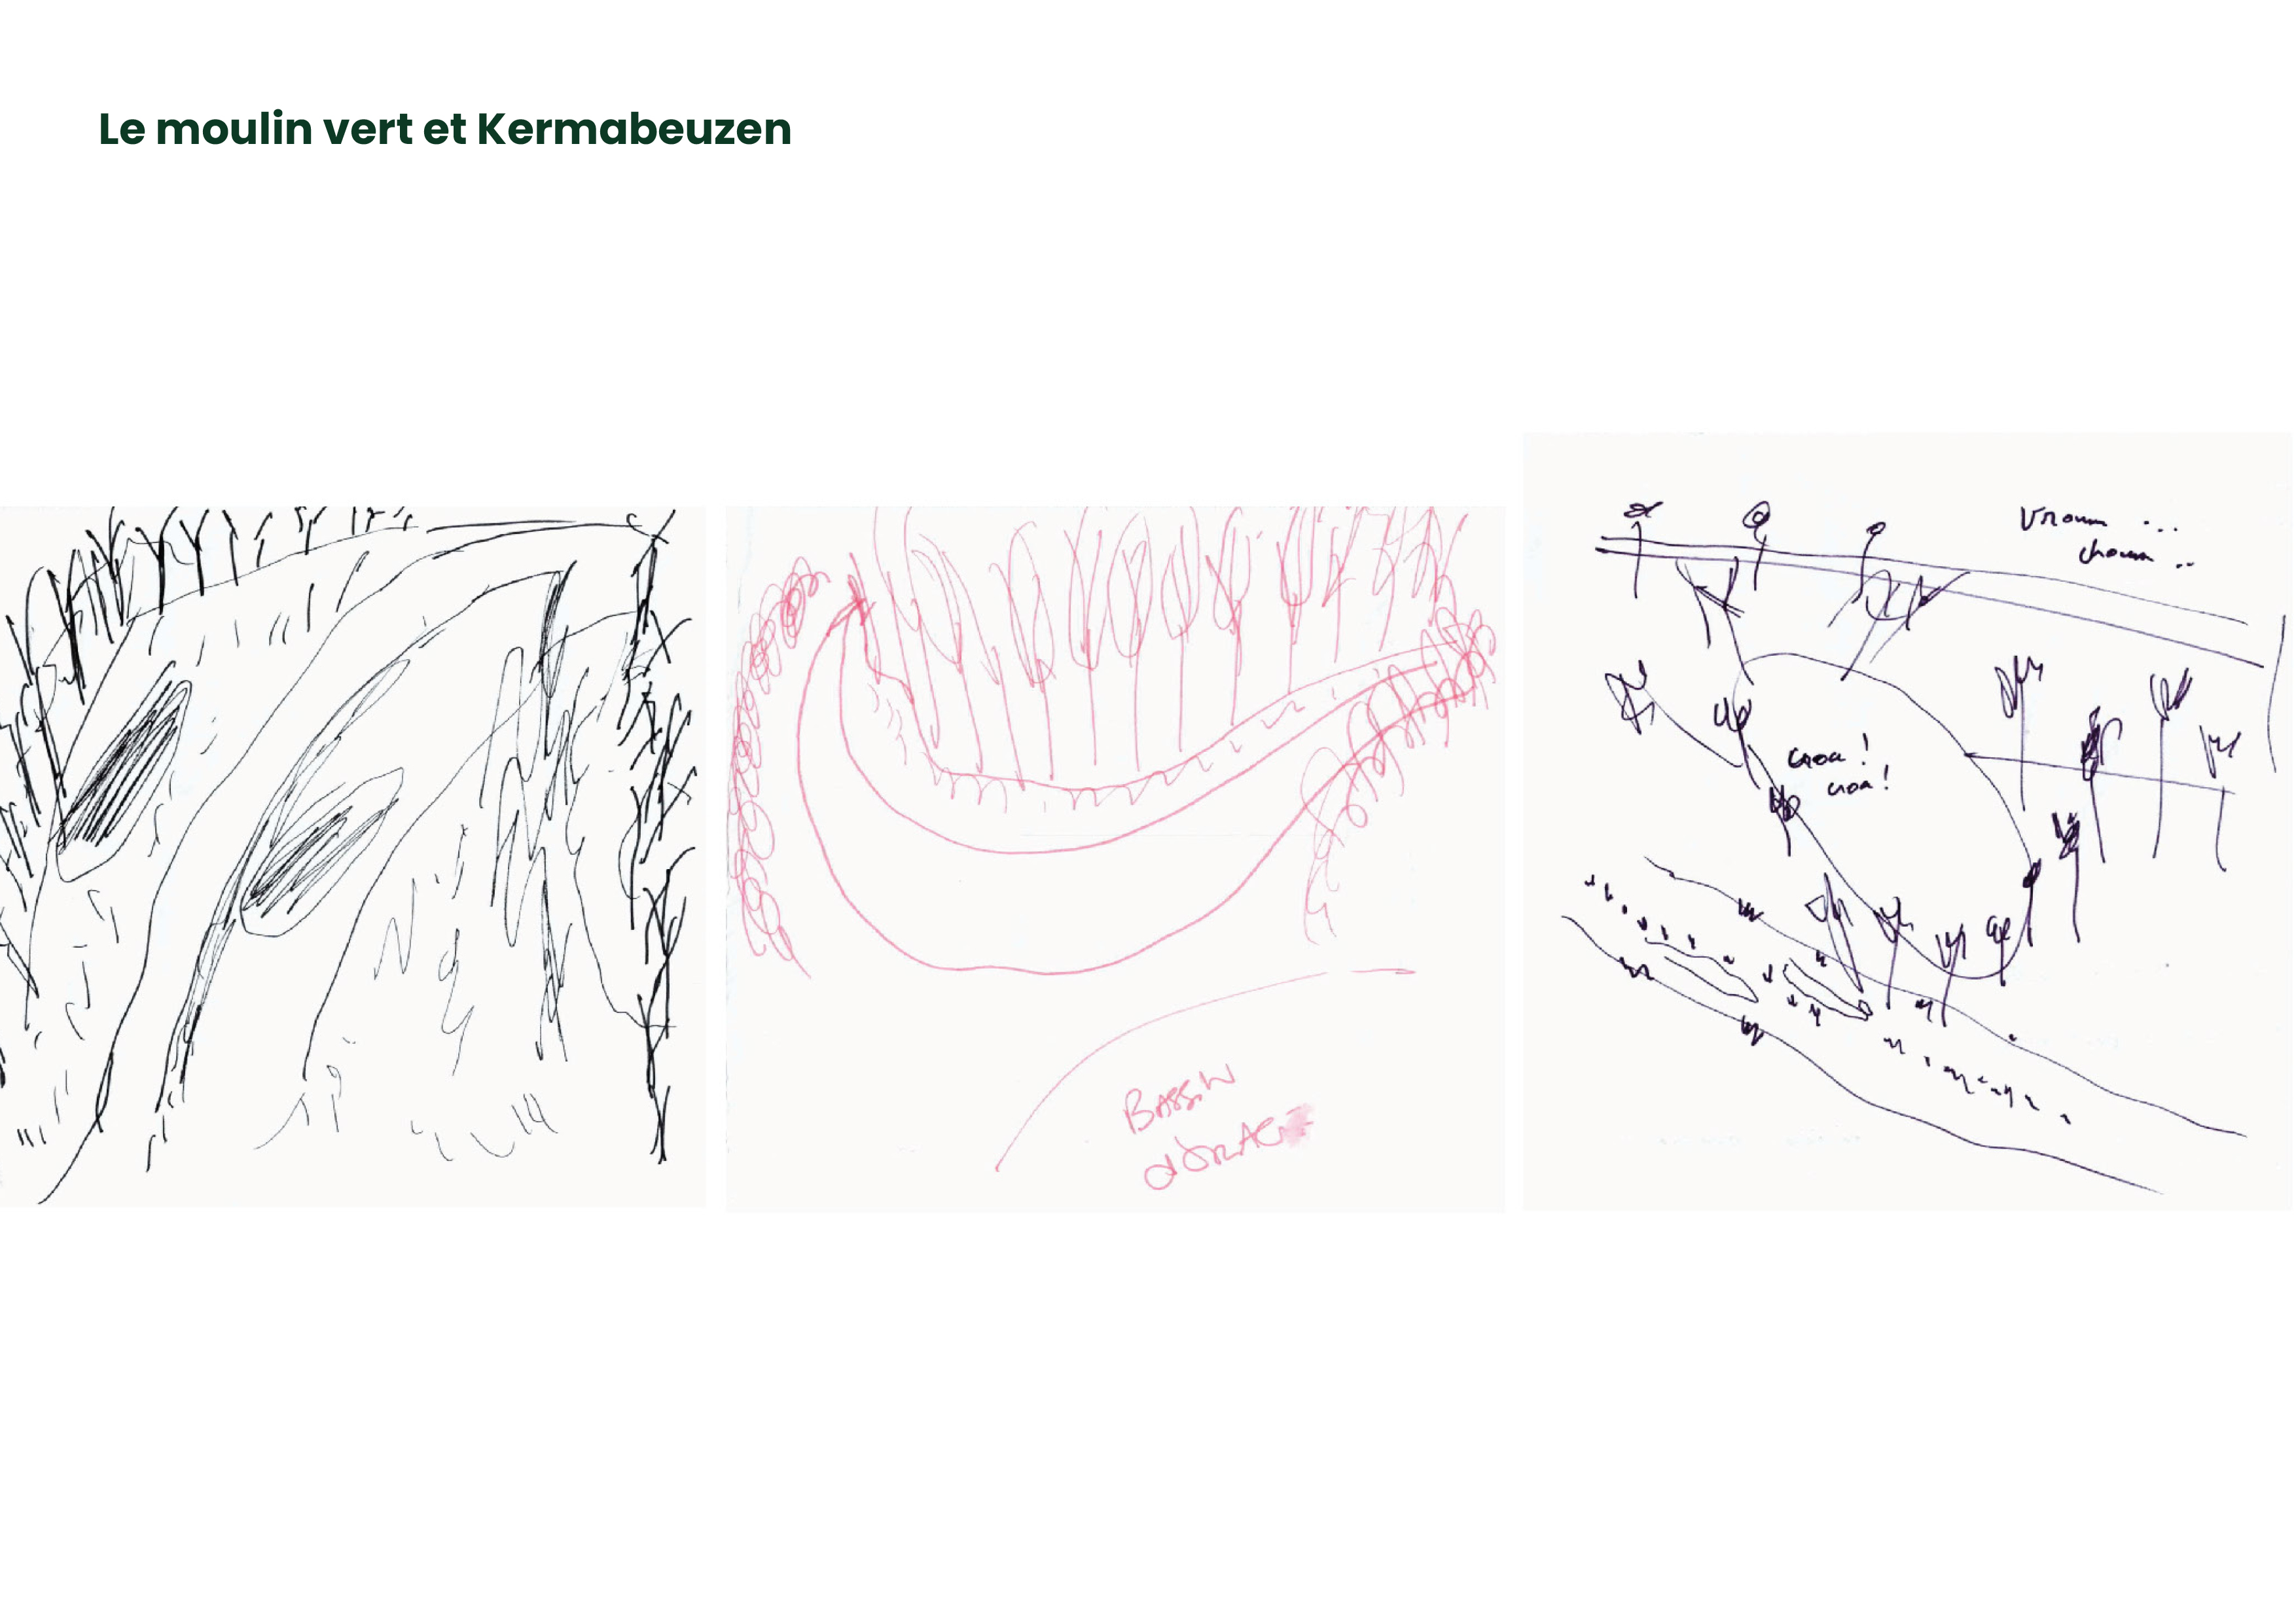 Le moulin vert et Kermabeuzen
BASSIN
d'ORAGE
Vroum ...
croa !
croa !